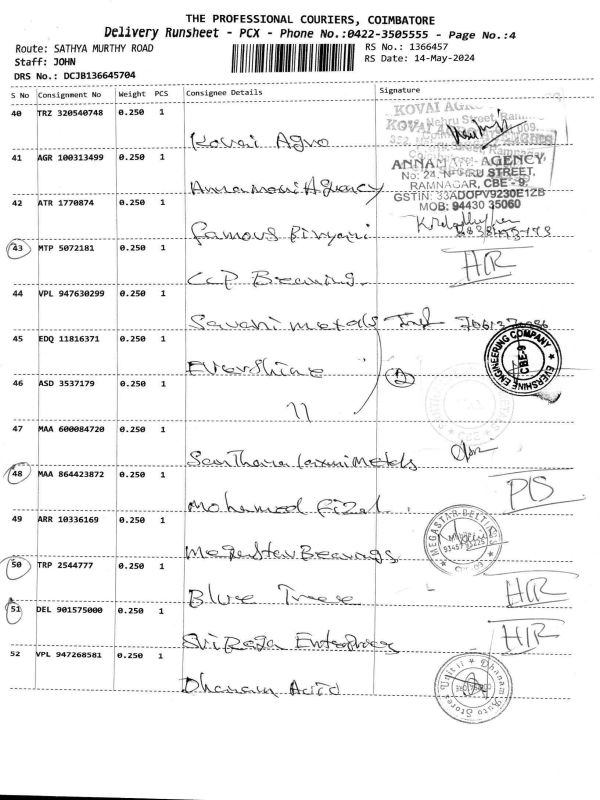 THE PROFESSIONAL COURIERS, COIMBATORE
Delivery Runsheet - PCX - Phone No.:0422-3505555 - Page No.:4
Route: SATHYA MURTHY ROAD
RS No.: 1366457
Staff: JOHN
RS Date: 14-May-2024
DRS No.: DCJB136645704
S No Consignment No Weight PCS Consignee Details Signature
40 TRZ 320540748 0.250 1
Kovai Agro
KOVAI AGRO
41 AGR 100313499 0.250 1
Annamani Aguency
ANNAMANI AGENCY
No: 24, NEHRU STREET,
RAMNAGAR, CBE - 9.
GSTIN: 33ADOPV9230E1ZB
MOB: 94430 35060
42 ATR 1770874 0.250 1
famous Biryani
43 MTP 5072181 0.250 1
CCP Bearing.
H/R
44 VPL 947630299 0.250 1
Savani metals
45 EDQ 11816371 0.250 1
Evershine
EVERSHINE ENGINEERING COMPANY
CBE-9
46 ASD 3537179 0.250 1
11
2
47 MAA 600084720 0.250 1
Santhana Laxmi Metals
48 MAA 864423872 0.250 1
Mohamed fizal.
D/S
49 ARR 10336169 0.250 1
Megastar Bearings
MEGASTAR BELTINGS
50 TRP 2544777 0.250 1
Blue Treee
H/R
51 DEL 901575000 0.250 1
Sri Raga Enterprises
H/R
52 VPL 947268581 0.250 1
Dhanam Acid
Dhanam Auto Stores